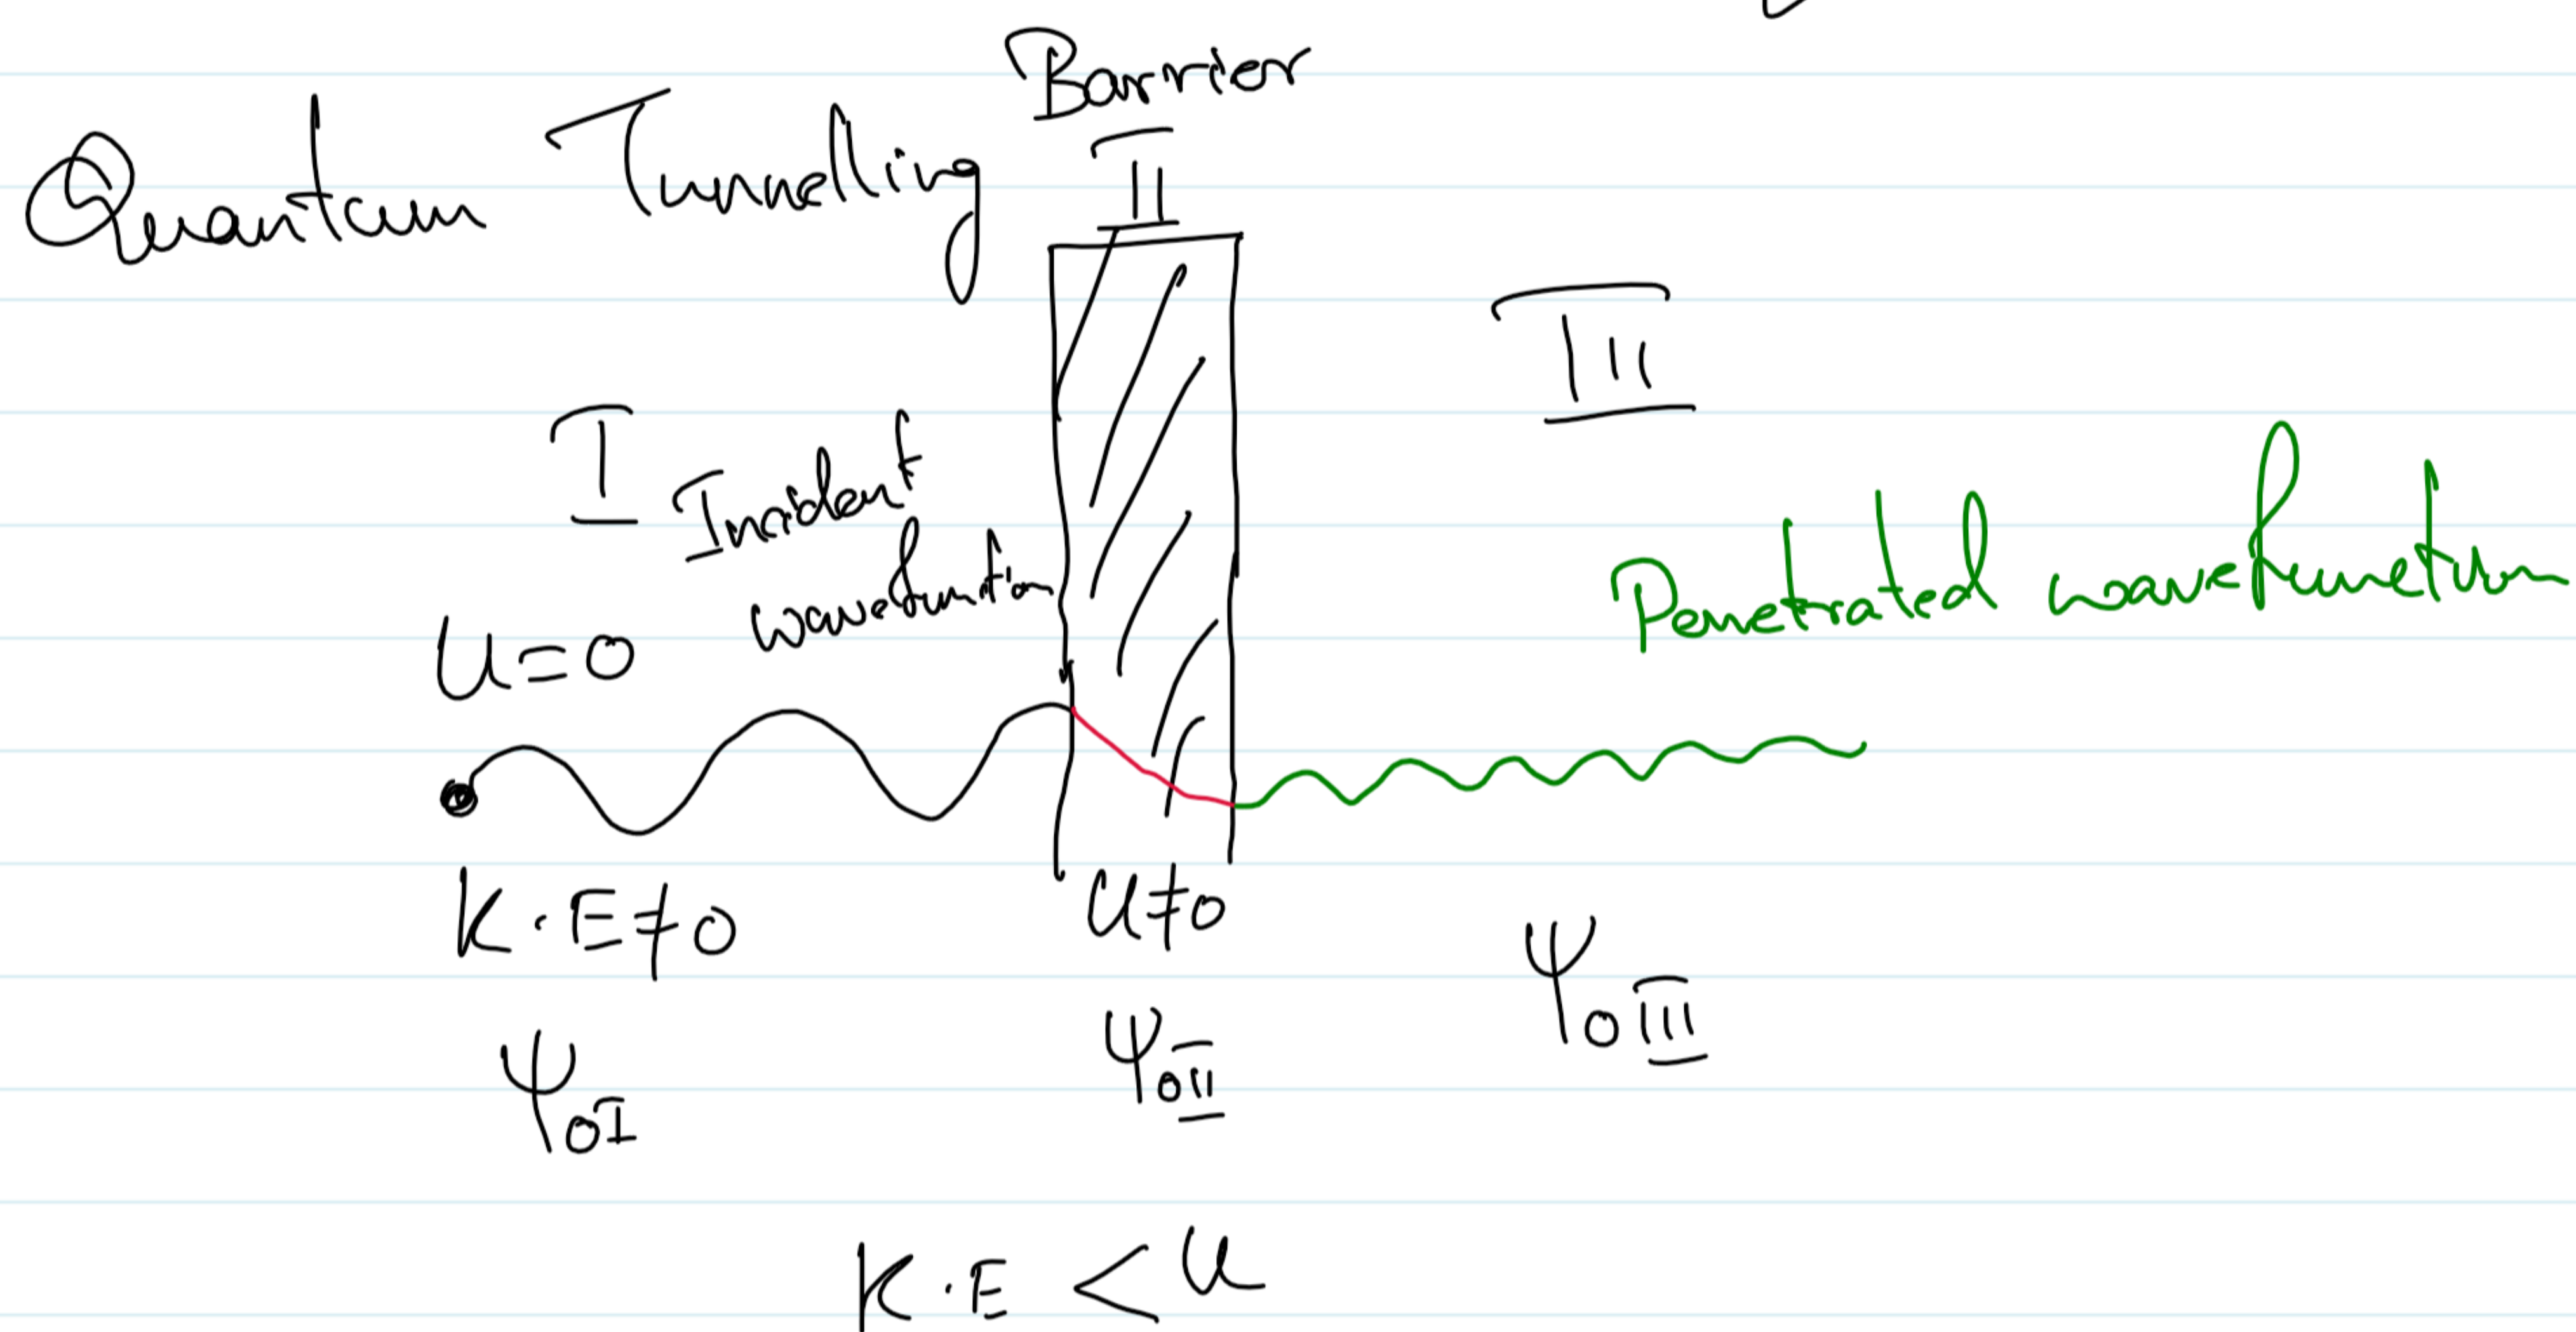 Quantum Tunnelling
Barrier
II
III
I
Incident
wavefuntion
Penetrated wavefunction
U=0
K.E≠0
U≠0
Ψ0I
Ψ0II
Ψ0III
K.E < U